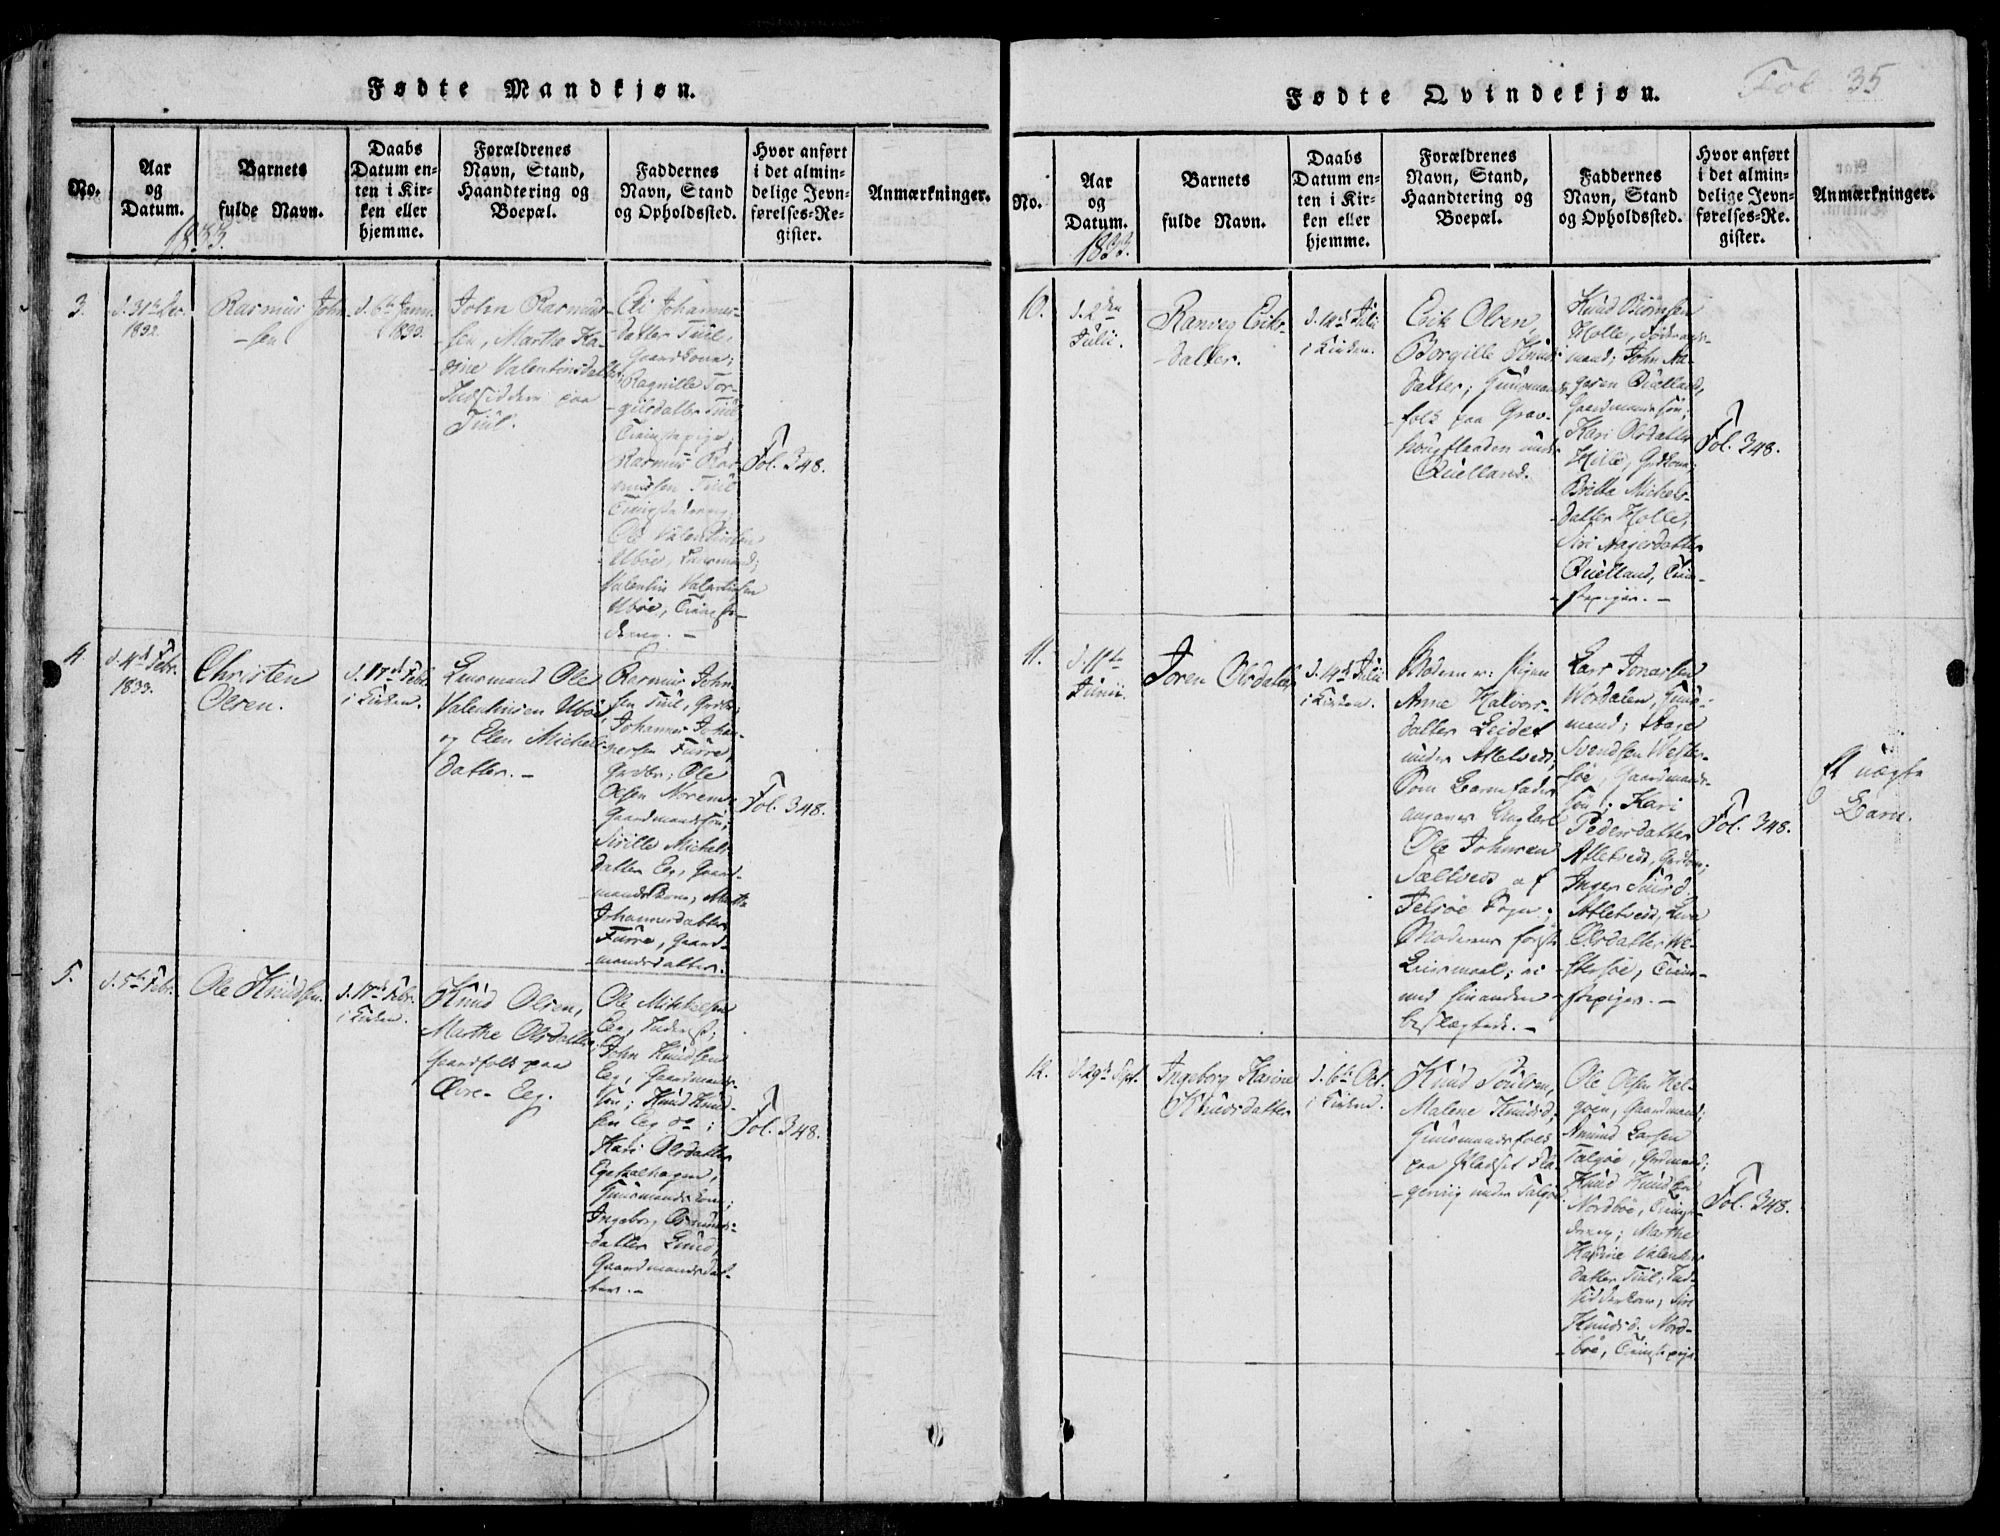 Fødte Mandkjøn.
No.
Aar
og
Datum.
Barnets
fulde Navn.
Daabs
Datum en-
ten i Kir-
ken eller
hjemme.
Forældrenes
Navn, Stand,
Haandtering og
Boepæl.
Faddernes
Navn, Stand
og Opholdssted.
Hvor anført
i det almin-
delige Jevn-
førelses-Re-
gister.
Anmærkninger.
1833.
3.
1832.
Rasmus John-
-sen
1833.
John Rasmus-
-sen, Marthe Ka-
-rine Valentinsdatter
Indsiddere paa
Tiul.
Eli Johannes-
-datter Tiul,
Gaardkone;
Ragnille Tor-
-gilsdatter Tiul
Tienestepige,
Rasmus Ras-
-mussen Tiul
Ole Valentinsen
Uboe, Leusmand;
Valentin Valentinsen
Uboe, Tieneste-
dreng. -
Fol. 348.
4.
d. 4de Febr.
1833.
Christen
Olsen.
d. 17de Febr.
i Kirken.
Leusmand Ole
Valentinsen Uboe
og Elen Michels-
datter. -
Rasmus John-
sen Tiul, Grdbr;
Johannes Johan-
nesen Furre,
Grdbr; Ole
Olsen
Gaardmandssøn;
Siville Michels-
datter Eeg, Gaard-
mandskone, Marthe
Johannesdatter
Furre, Gaard-
mandsdatter.
Fol. 348.
5.
d. 5te Febr.
Ole Knudsen.
d. 17de Febr.
i Kirken.
Knud Olsen,
Marthe Olsdatter
Gaardfolk paa
Øvre-Eeg.
Ole Mikkelsen
Eeg,
John Knudsen
Eeg, Gaardmands-
søn; Knud Knud-
sen Eeg do;
Kari Olsdatter
Egeskalhagen,
Huusmandskone;
Ingeborg
datter Lund,
Gaardmandsdat-
ter. -
Fol. 348.
Fødte Qvindekjøn.
Fol. 35
No.
Aar
og
Datum.
Barnets
fulde Navn.
Daabs
Datum en-
ten i Kir-
ken eller
hjemme.
Forældrenes
Navn, Stand,
Haandtering og
Boepæl.
Faddernes
Navn, Stand
og Opholdssted.
Hvor anført
i det almin-
delige Jevn-
førelses-Re-
gister.
Anmærkninger.
1833.
10.
d. 2den
Julii.
Ranveg Eriks-
-datter.
d. 14de Julii
i Kirken.
Erik Olsen,
Borgille Knuds-
datter, Huusmands-
-folk paa Grav-
under
Quelland.
Knud Biørnsen
Holle,
mand; John Aa-
gesen Quelland,
Gaardmandssøn;
Kari Olsdatter
Hille, Grdkone;
Britta Michels-
datter Holle,
Siri Aagesdatter
Quelland, Tiene-
-stepiger. -
Fol. 348.
11.
Junii.
Joren Olsdatter
d. 14de Julii
i Kirken.
Moderen er: Pigen
Anne Halvors-
datter Leidet
under Atletveid;
Som Barnefader
angives Ungkarl
Ole Johnsen
Sæltveid af
Jelsøe Sogn;
Moderens første
Leiermaal; ei
med hinanden
beslægtede. -
Lars Jonasen
Huus-
mand; Aage
Svendsen Wester-
søe, Gaardmands-
søn; Kari
Pedersdatter
Atletveid, Grdkone;
Inger Siurd.
Atletveid, Live
Olsdatter We-
-stersøe, Tiene-
-stepiger. -
Fol. 348.
Et uægte
Barn.
12.
d. 29de Sept.
Ingeborg Karine
Knudsdatter
d. 6te Oct.
i Kirken.
Knud Poulsen,
Malene Knudsd.
Huusmandsfolk
paa Pladset
under Talgøe
Ole Olsen Hel-
gøen, Gaardmand;
Amund Larsen
Talgøe, Grdmand;
Knud Knudsen
Nordbøe, Tieneste-
dreng; Marthe
Karine Valentins-
datter Tiul, Ind-
sidderkone; Siri
Knudsd. Nord-
-bøe, Tienestepige.
Fol. 348.